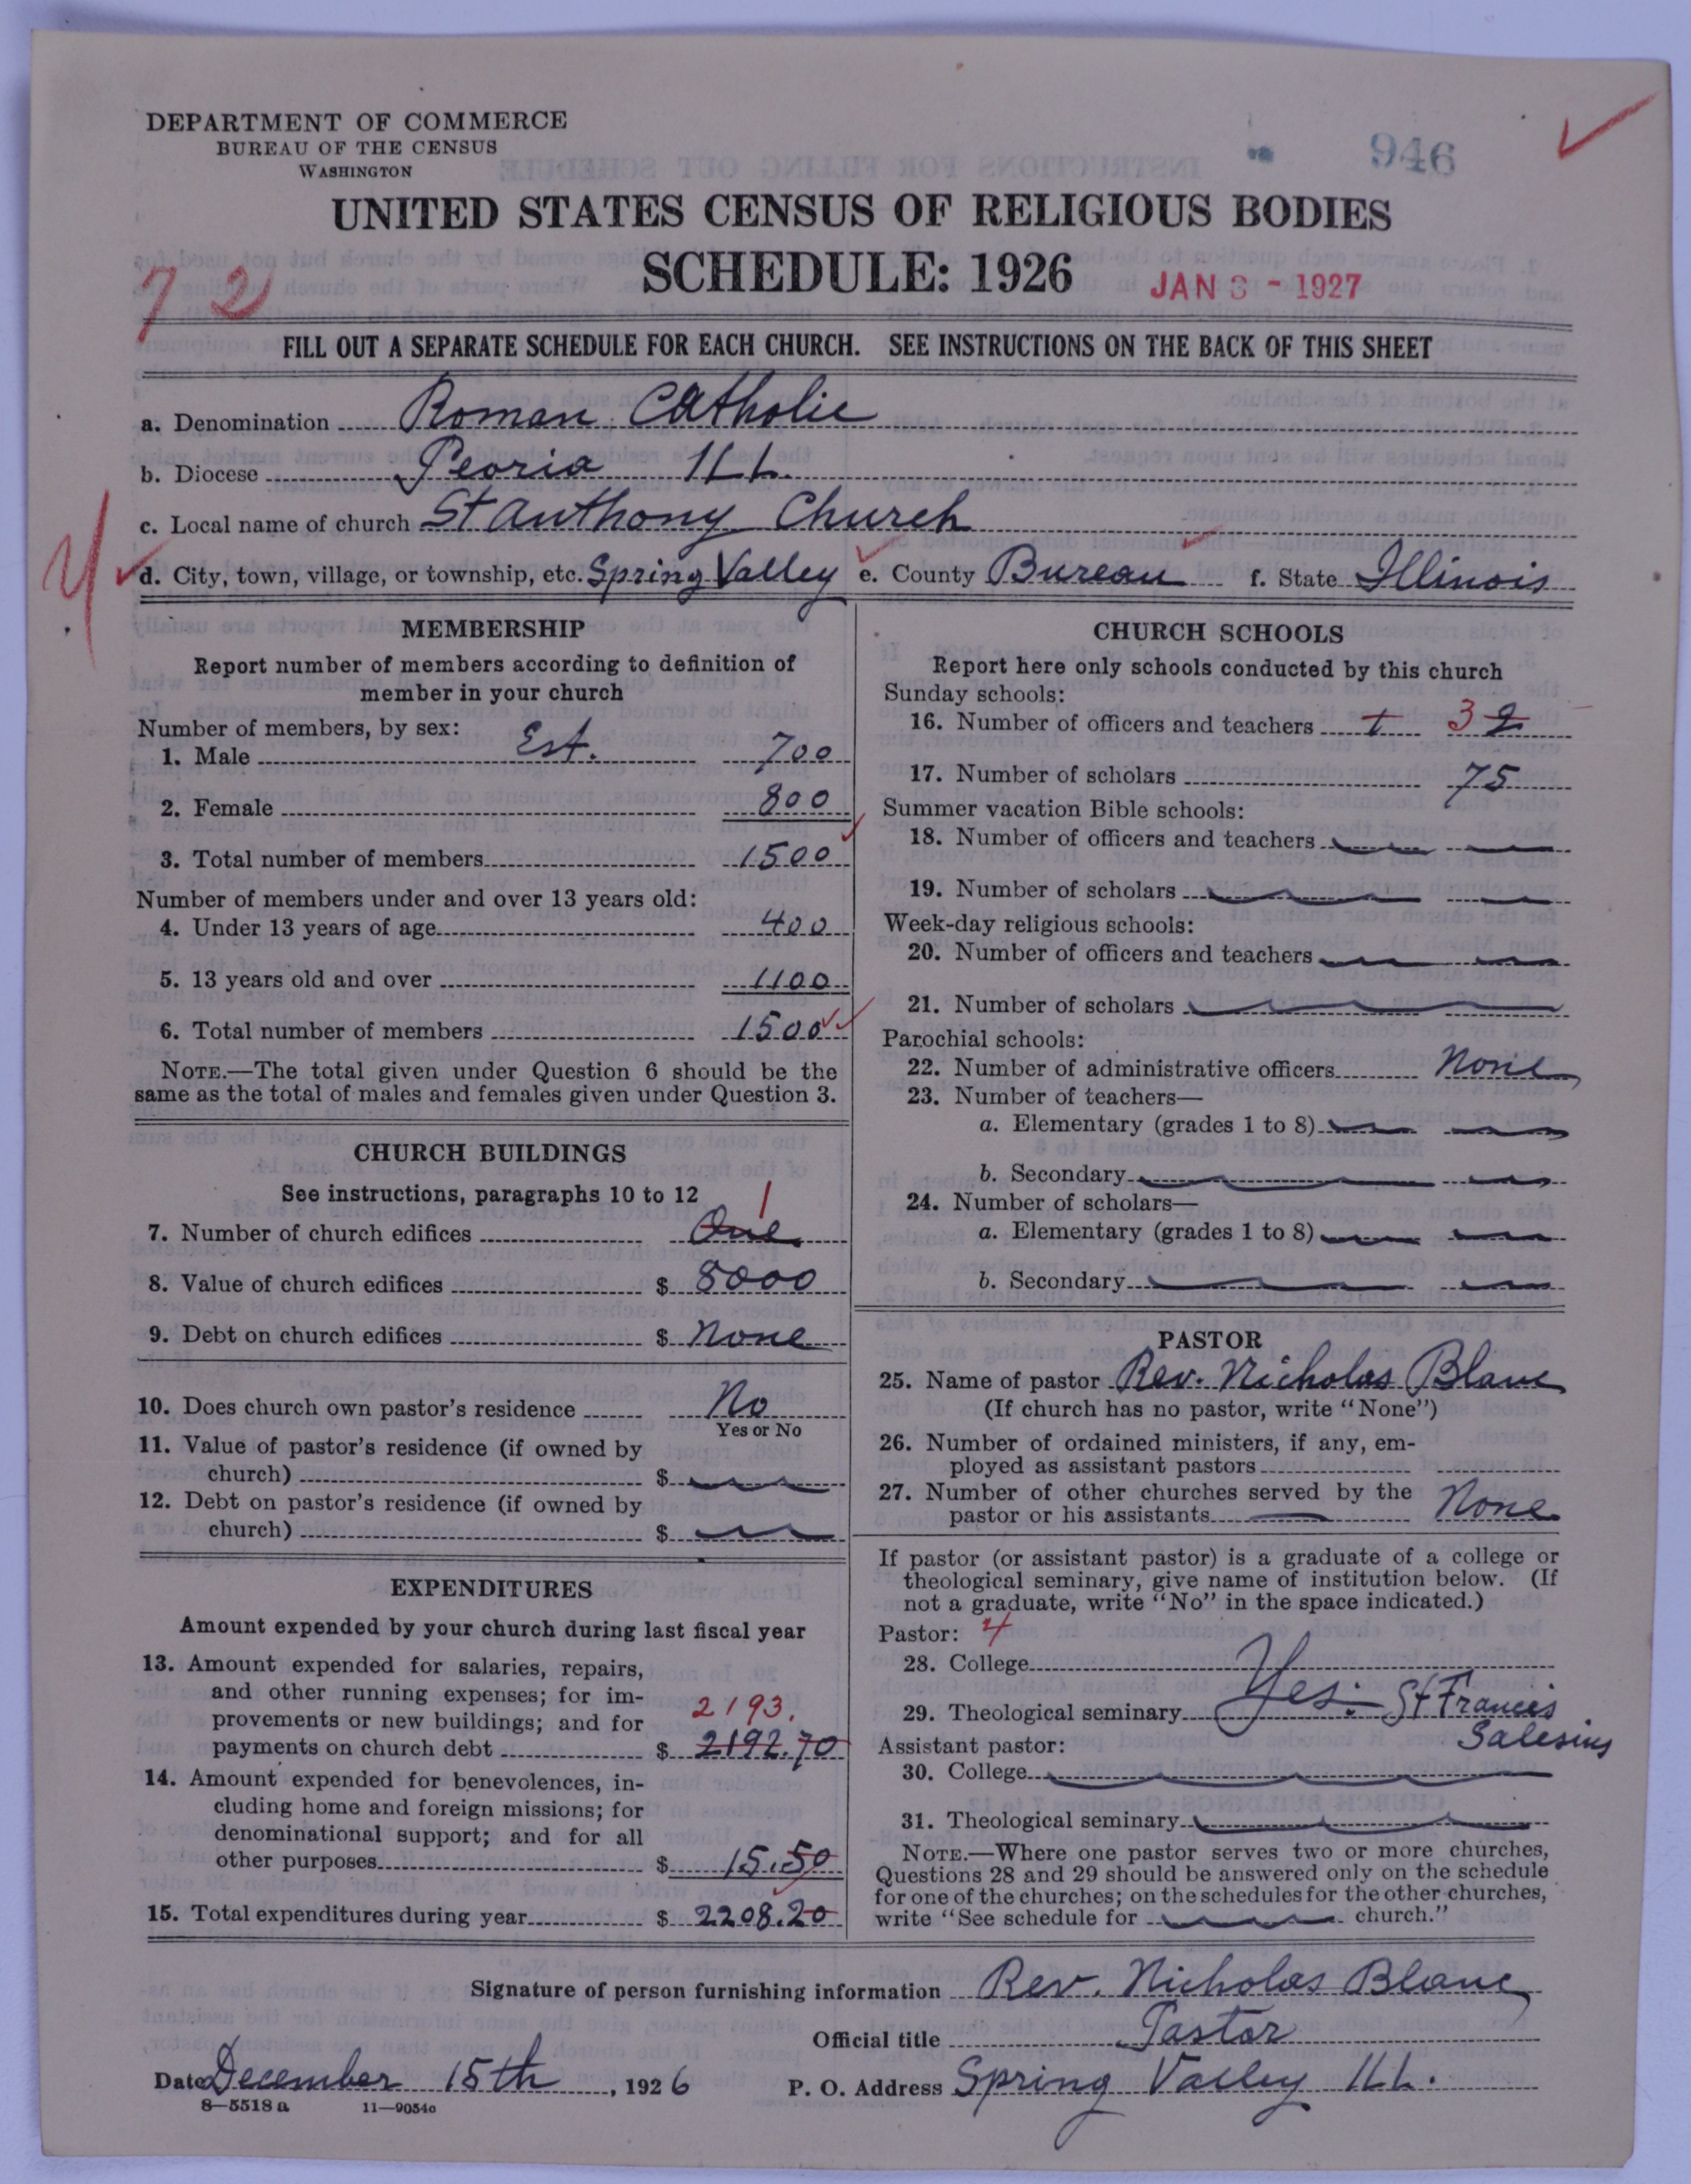 DEPARTMENT OF COMMERCE
BUREAU OF THE CENSUS
WASHINGTON
946
UNITED STATES CENSUS OF RELIGIOUS BODIES
SCHEDULE: 1926
JAN 3 - 1927
72
FILL OUT A SEPARATE SCHEDULE FOR EACH CHURCH. SEE INSTRUCTIONS ON THE BACK OF THIS SHEET
a. Denomination Roman Catholic
b. Diocese Peoria ILL.
c. Local name of church St Anthony Church
d. City, town, village, or township, etc. Spring Valley e. County Bureau f. State Illinois
MEMBERSHIP
Report number of members according to definition of
member in your church
Number of members, by sex:
1. Male Est. 700
2. Female 800
3. Total number of members 1500
Number of members under and over 13 years old:
4. Under 13 years of age 400
5. 13 years old and over 1100
6. Total number of members 1500
NOTE.—The total given under Question 6 should be the
same as the total of males and females given under Question 3.
CHURCH BUILDINGS
See instructions, paragraphs 10 to 12
7. Number of church edifices One 1
8. Value of church edifices $ 8000
9. Debt on church edifices $ None
10. Does church own pastor's residence No
Yes or No
11. Value of pastor's residence (if owned by
church) $
12. Debt on pastor's residence (if owned by
church) $
EXPENDITURES
Amount expended by your church during last fiscal year
13. Amount expended for salaries, repairs,
and other running expenses; for im-
provements or new buildings; and for 2193.
payments on church debt $ 2192.70
14. Amount expended for benevolences, in-
cluding home and foreign missions; for
denominational support; and for all
other purposes $ 15.50
15. Total expenditures during year $ 2208.20
CHURCH SCHOOLS
Report here only schools conducted by this church
Sunday schools:
16. Number of officers and teachers 3 2
17. Number of scholars 75
Summer vacation Bible schools:
18. Number of officers and teachers
19. Number of scholars
Week-day religious schools:
20. Number of officers and teachers
21. Number of scholars
Parochial schools:
22. Number of administrative officers None
23. Number of teachers—
a. Elementary (grades 1 to 8)
b. Secondary
24. Number of scholars—
a. Elementary (grades 1 to 8)
b. Secondary
PASTOR
25. Name of pastor Rev. Nicholas Blanc
(If church has no pastor, write "None")
26. Number of ordained ministers, if any, em-
ployed as assistant pastors
27. Number of other churches served by the
pastor or his assistants None
If pastor (or assistant pastor) is a graduate of a college or
theological seminary, give name of institution below. (If
not a graduate, write "No" in the space indicated.)
Pastor: 4
28. College
29. Theological seminary Yes: St Francis
Salesius
Assistant pastor:
30. College
31. Theological seminary
NOTE.—Where one pastor serves two or more churches,
Questions 28 and 29 should be answered only on the schedule
for one of the churches; on the schedules for the other churches,
write "See schedule for church."
Signature of person furnishing information Rev. Nicholas Blanc
Official title Pastor
Date December 15th, 1926 P. O. Address Spring Valley ILL.
8—5518 a 11—9054c